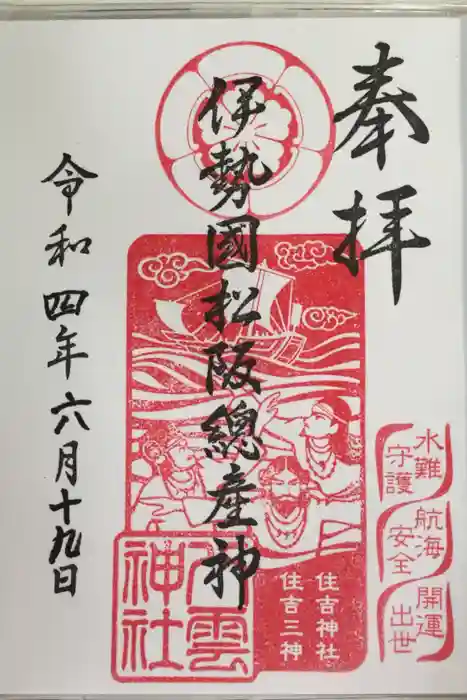 奉拝
伊勢國松阪總産神
令和四年六月十九日
水難
守護
航海
安全
開運
出世
住吉神社
住吉三神
八雲
神社